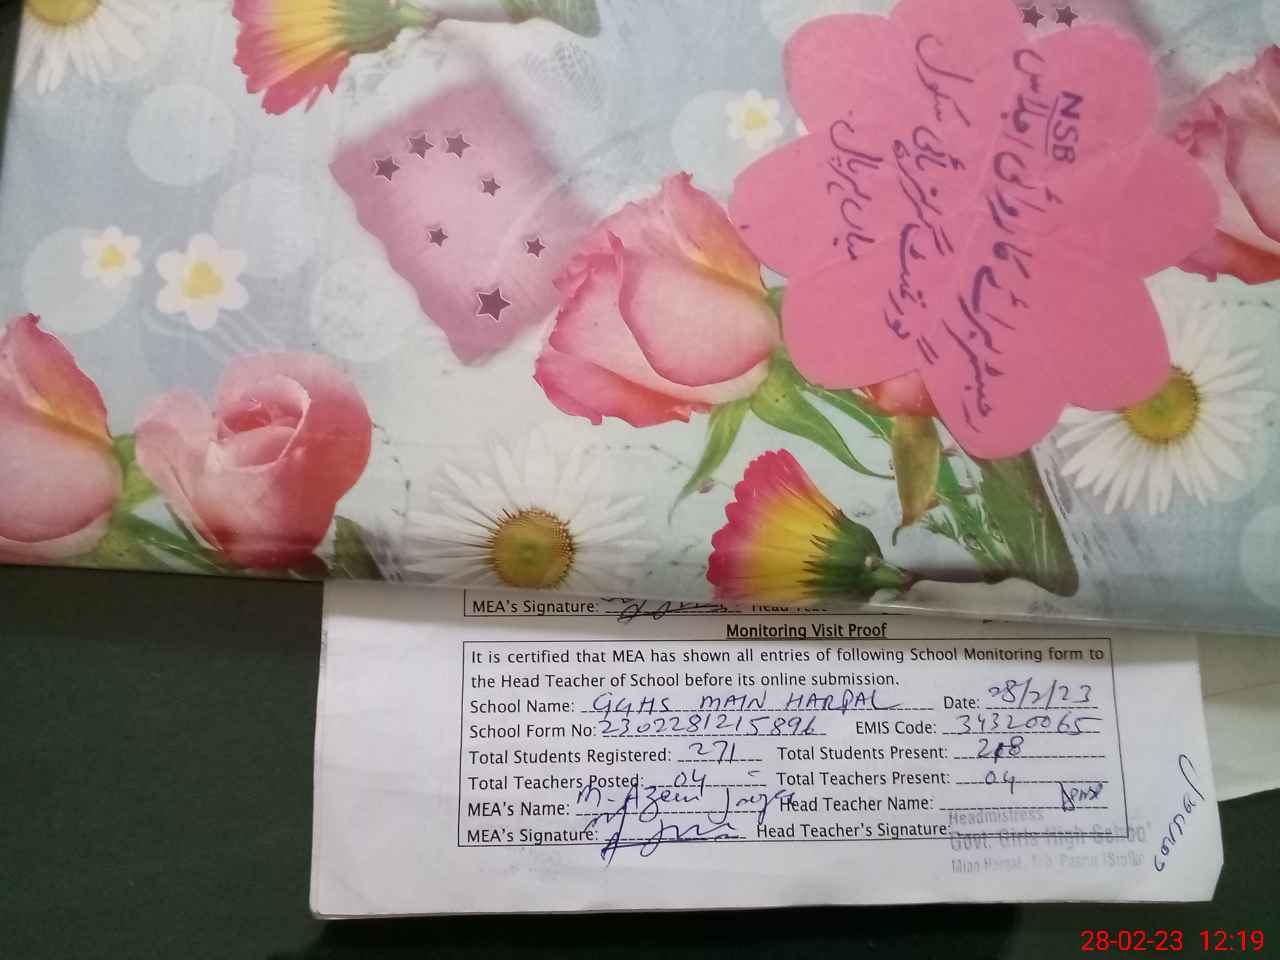 NSB
رجسٹر برائے کاروائی اجلاس
گورنمنٹ گرلز ہائی سکول
میاں ہرپال
MEA's Signature:
Monitoring Visit Proof
It is certified that MEA has shown all entries of following School Monitoring form to
the Head Teacher of School before its online submission.
School Name: GGHS MAIN HARPAL Date: 28/2/23
School Form No: 2302281215896 EMIS Code: 34320065
Total Students Registered: 271 Total Students Present:
Total Teachers Posted: 04 Total Teachers Present: 04
MEA's Name: M. Azeem Head Teacher Name:
MEA's Signature: Head Teacher's Signature:
Headmistress
Govt. Girls High School
Mian Harpal,
28-02-23 12:19